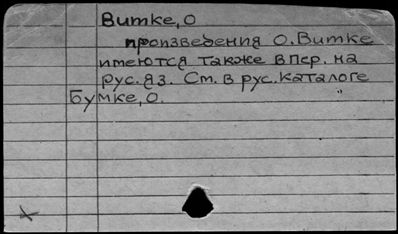 Витке, О
произведения О. Витке
имеются также в пер. на
рус. яз. См. в рус. каталоге
Бумке, О.